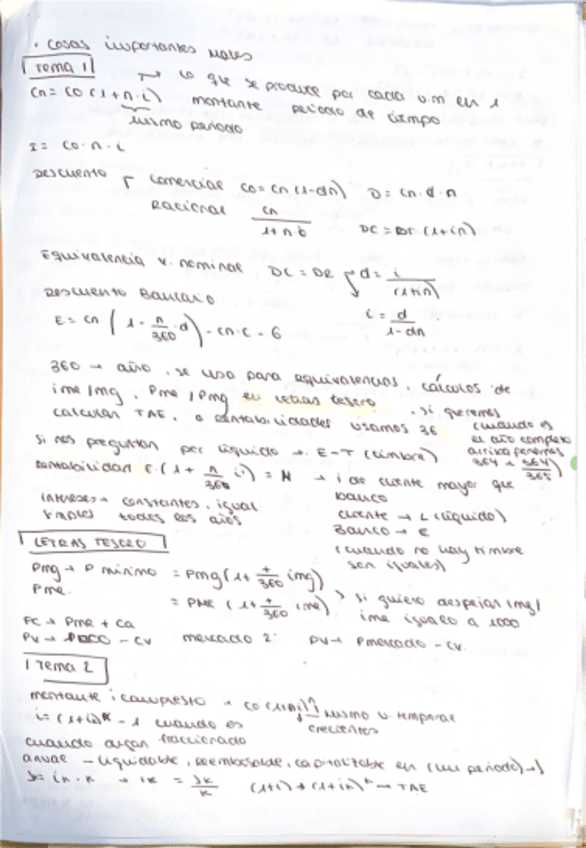 · cosas importantes mates
Tema 1
→ lo que se produce por cada u.m en 1
Cn = Co (1+n·i) montante periodo de tiempo
mismo periodo
I = Co·n·i
Descuento comercial Co = Cn (1-dn) D = Cn·d·n
Racional Cn / 1+n·i DC = DR (1+in)
Equivalencia v. nominal DC = DR d = i / (1+in)
Descuento Bancario i = d / 1-dn
E = Cn (1 - n/360 · d) - Cn·C - G
360 → año, se usa para equivalencias, cálculos de
img, Pme / Pmg en letras tesoro
calcular TAE, o rentabilidades usamos . si queremos
(cuando es
el año completo
Si nos preguntan por líquido → E-T (timbre)
364 → 364/365
rentabilidad (1 + n/360 i) = N → i de cliente mayor que
banco
intereses → constantes, igual cliente → L (líquido)
simples todos los años Banco → E
(cuando no hay timbre
son iguales)
LETRAS TESORO
Pmg → P mínimo = Pmg (1+ t/360 img)
Pme. = Pme (1+ t/360 ime) > si quiero despejar img/
ime igualo a 1000
PC → Pme + Ca
PV → 1000 - CV mercado 2: PV → Pmercado - CV.
Tema 2
montante i compuesto → Co (1+i)^n mismo u. temporal
i = (1+ik)^k - 1 cuando es
crecientes
cuando digan fraccionado
anual - liquidable, reembolsable, capitalizable en (un periodo) → J
J = ik·k → ik = Jk/k (1+i) = (1+ik)^k → TAE